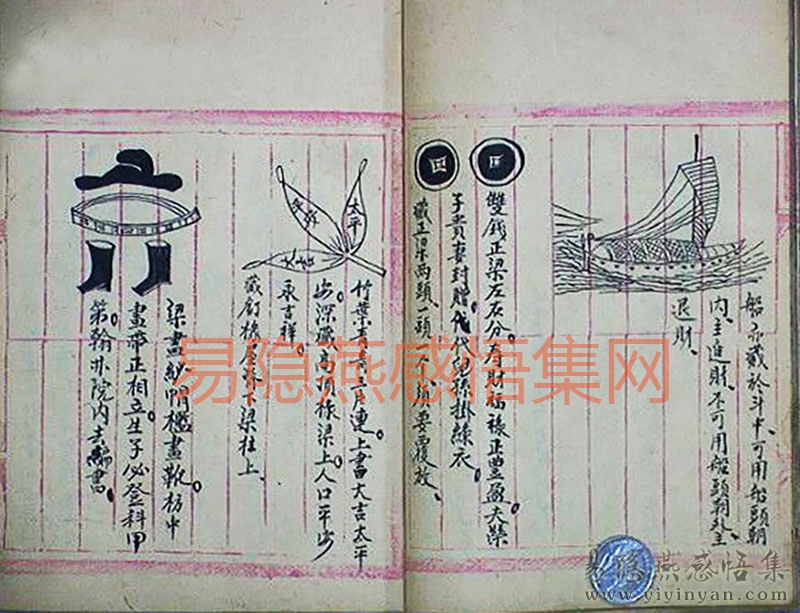 船亦藏於斗中可用船頭朝
内、主進財、不可用船頭朝外主
退財、
雙錢正梁左右分。壽財福祿正豐盈夫榮
子貴妻封贈代代兒孫掛綠衣。
藏正梁兩頭一頭一个須要覆放、
太平
竹葉青青三片連。上書大吉太平
安深藏高頂椽梁上人口平安
永吉祥。
藏釘椽屋脊下梁柱上、
梁畫紗帽檻畫靴枋中
畫帶正相立生子必登科甲
第翰林院内去編書。
易隐燕感悟集网
易隐燕感悟集
www.yiyinyan.com